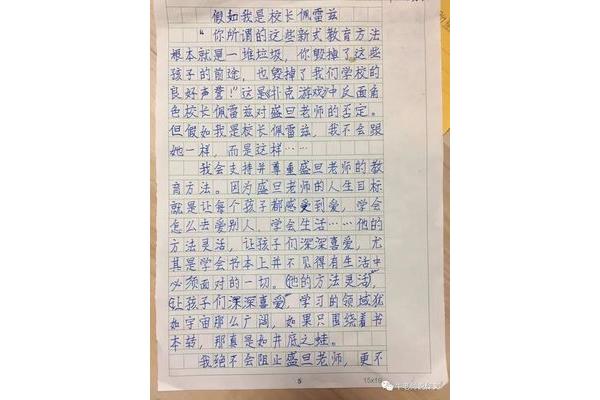 假如我是校长佩雷兹
“你所谓的这些新式教育方法
根本就是一堆垃圾，你毁掉了这些
孩子的前途，也毁掉了我们学校的
良好声誉！”这是《扑克游戏》中反面角
色校长佩雷兹对盛旦老师的否定。
但假如我是校长佩雷兹，我不会跟
她一样，而是这样……
我会支持并尊重盛旦老师的教
育方法。因为盛旦老师的人生目标
就是让每个孩子都感受到爱，学会
怎么去爱别人，学会生活……他的
方法灵活，让孩子们深深喜爱，尤
其是学会书本上并不见得有生活中
必须面对的一切。“他的方法灵活，
让孩子们深深喜爱”学习的领域犹
如宇宙那么广阔，如果只围绕着书
本转，那真是如井底之蛙。
我绝不会阻止盛旦老师，更不
5